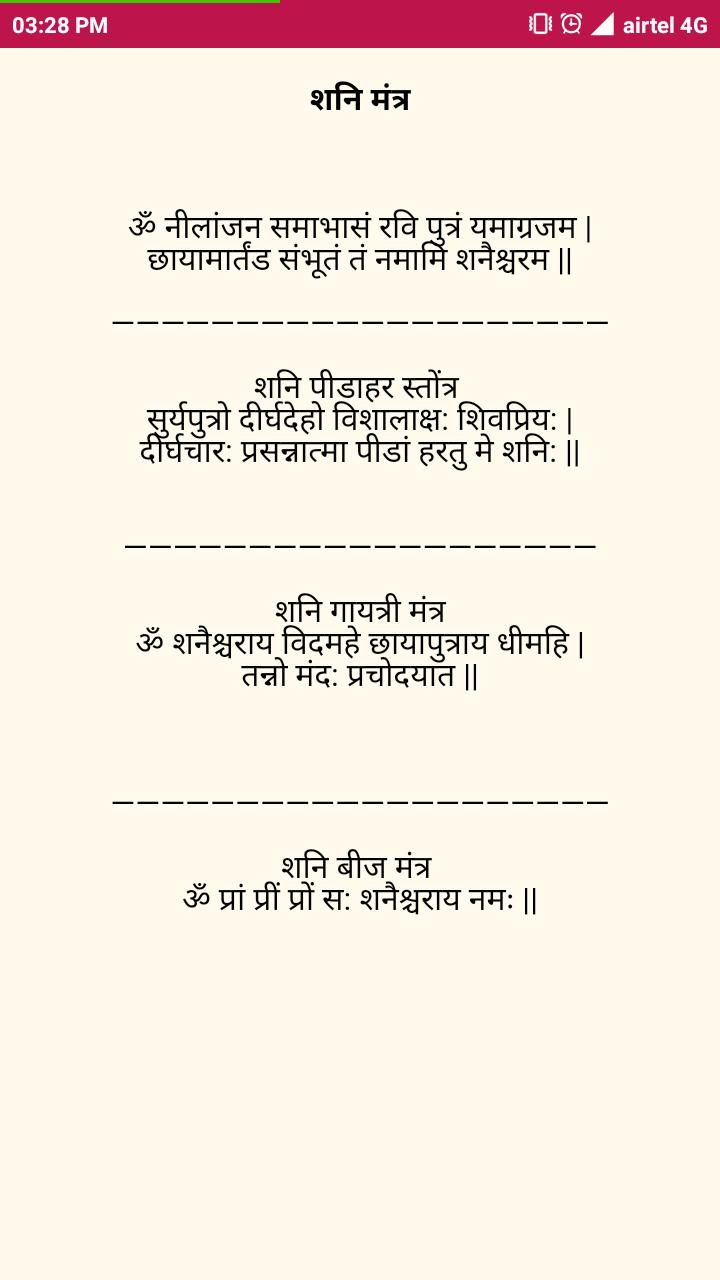 03:28 PM airtel 4G
शनि मंत्र
ॐ नीलांजन समाभासं रवि पुत्रं यमाग्रजम |
छायामार्तंड संभूतं तं नमामि शनैश्चरम ||
————————————————————
शनि पीडाहर स्तोंत्र
सुर्यपुत्रो दीर्घदेहो विशालाक्ष: शिवप्रिय: |
दीर्घचार: प्रसन्नात्मा पीडां हरतु मे शनि: ||
———————————————————
शनि गायत्री मंत्र
ॐ शनैश्चराय विदमहे छायापुत्राय धीमहि |
तन्नो मंद: प्रचोदयात ||
————————————————————
शनि बीज मंत्र
ॐ प्रां प्रीं प्रों स: शनैश्चराय नमः ||